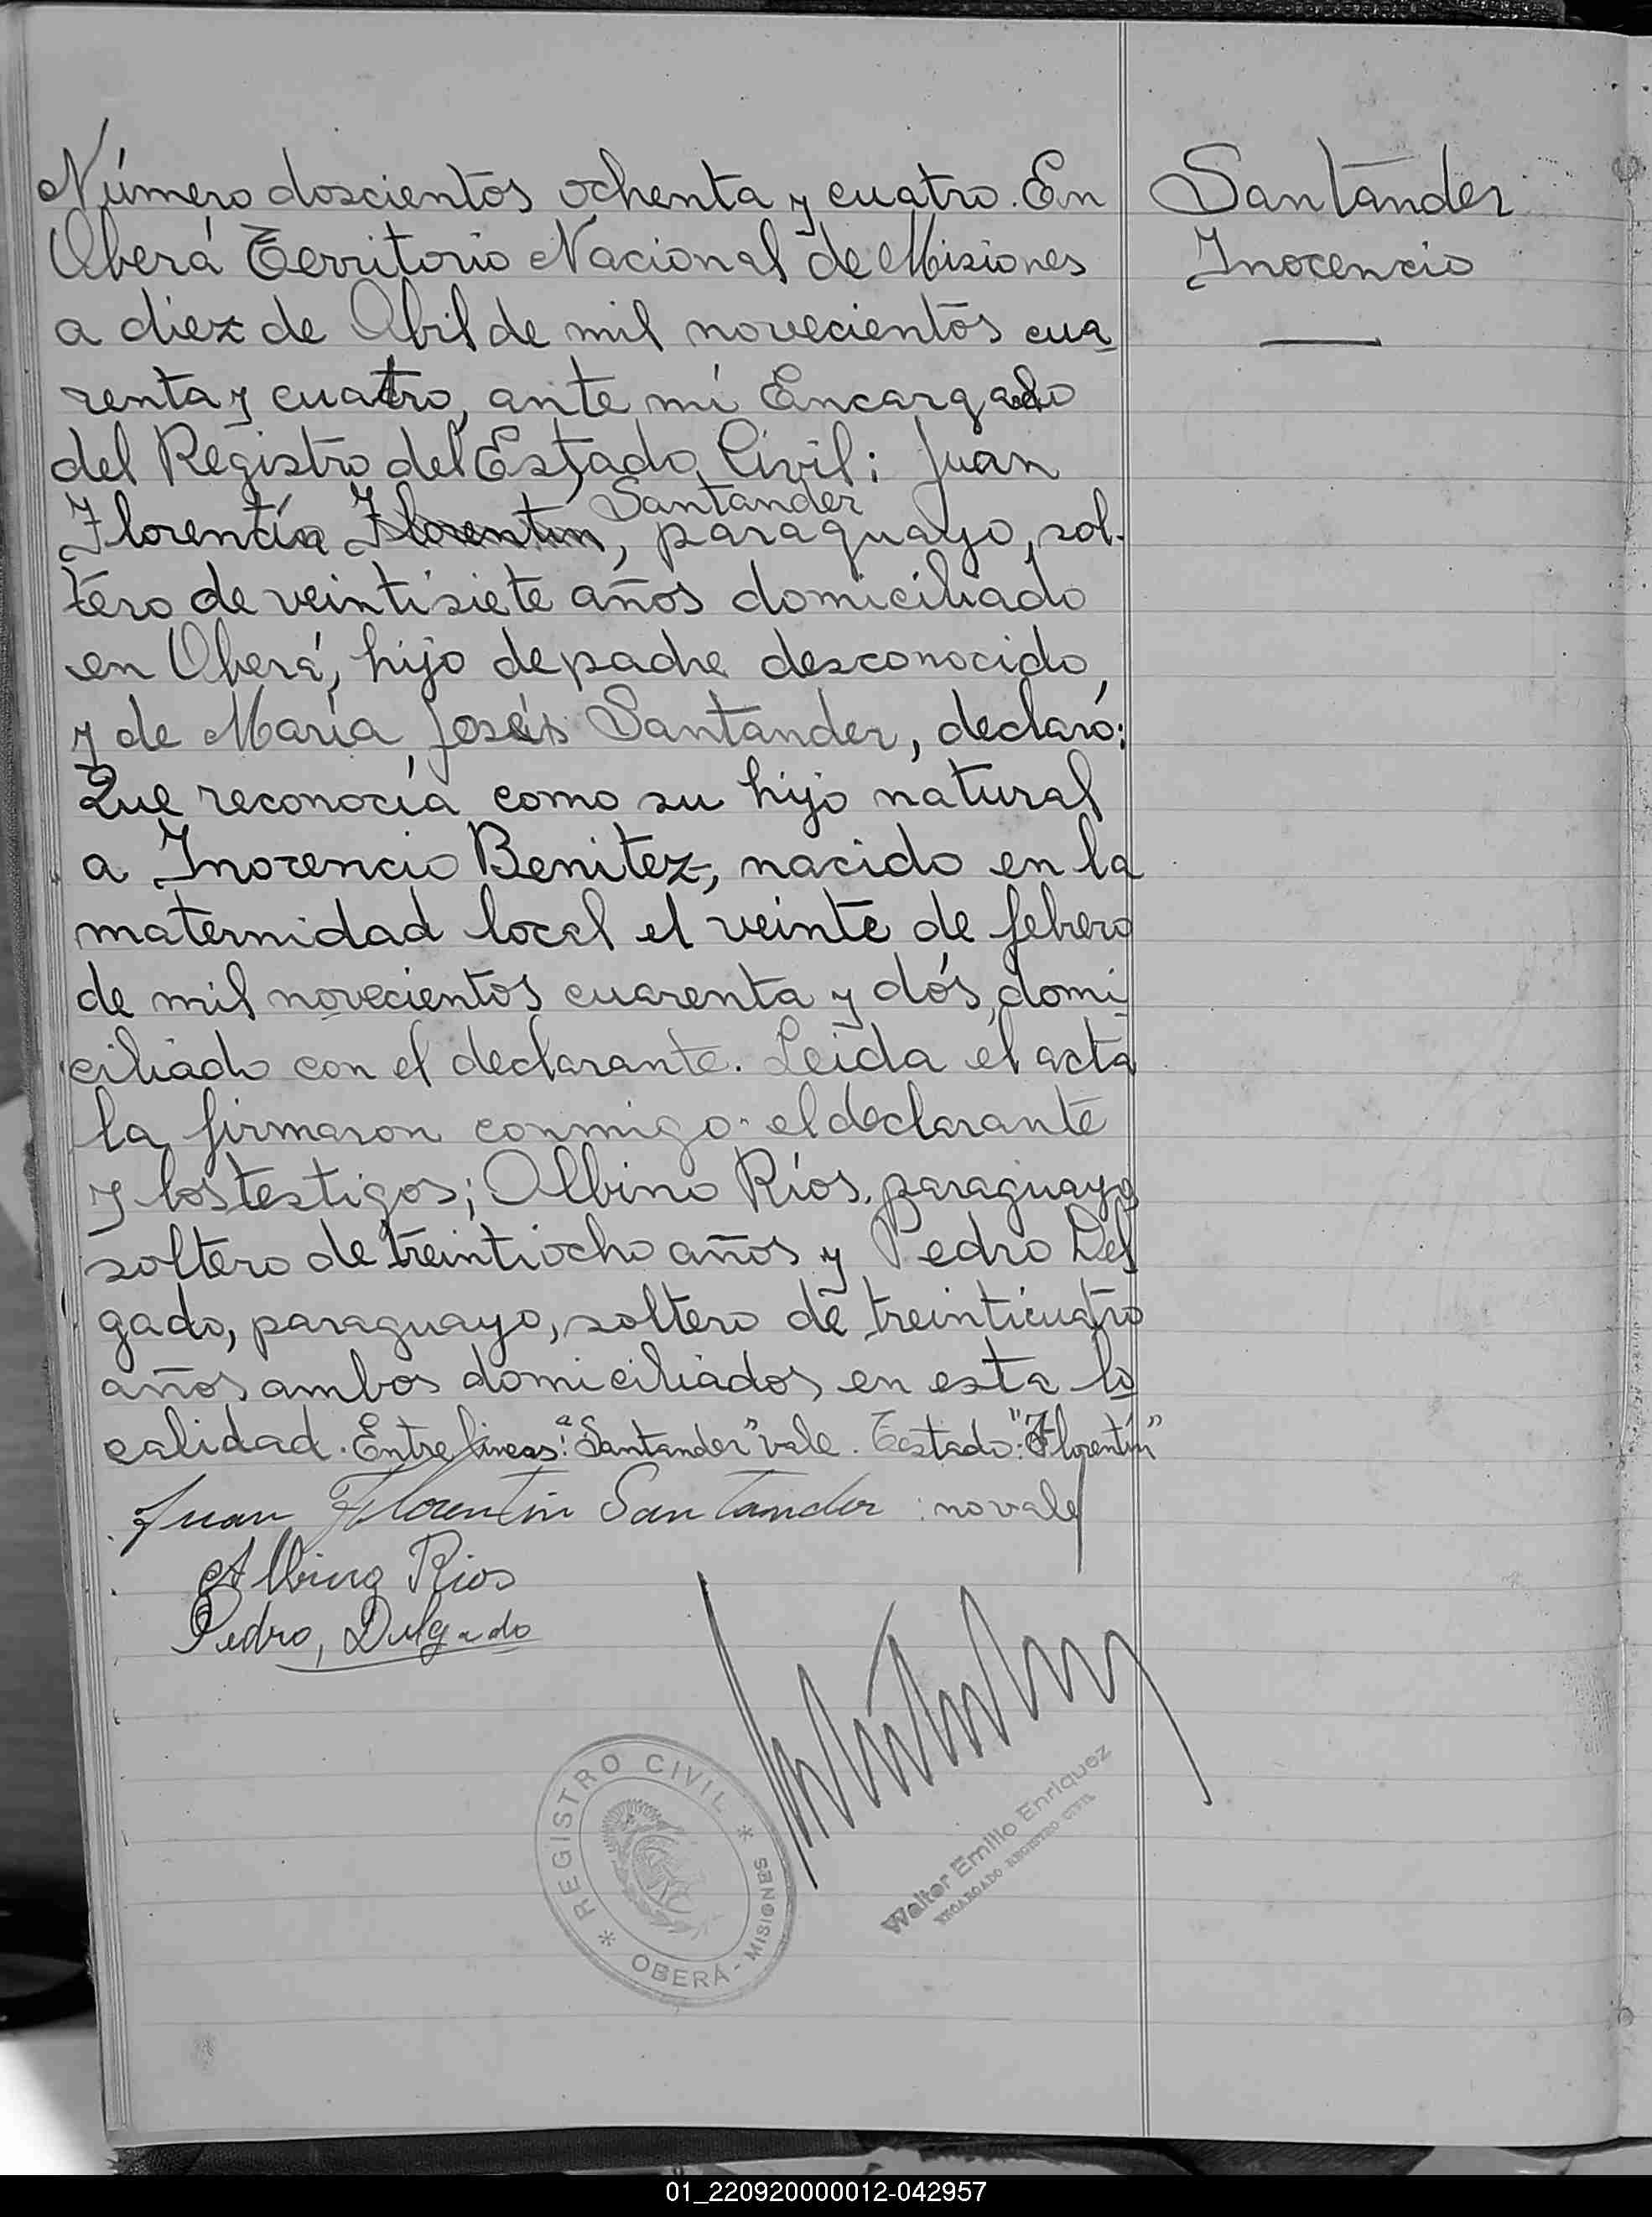 Número doscientos ochenta y cuatro. En
Oberá Territorio Nacional de Misiones
a diez de Abil de mil novecientos cua
renta y cuatro, ante mí Encargado
del Registro del Estado Civil: Juan
Santander
Florentín Florentin, paraguayo, sol-
tero de veintisiete años domiciliado
en Oberá, hijo de padre desconocido,
y de María Santander, declaró:
Que reconocía como su hijo natural
a Inocencio Benitez, nacido en la
maternidad local el veinte de febrero
de mil novecientos cuarenta y dós, domi
ciliado con el declarante. Leída el acta
la firmaron conmigo el declarante
y los testigos; Albino Ríos, paraguayo
soltero de treintiocho años y Pedro Del
gado, paraguayo, soltero de treinticuatro
años ambos domiciliados en esta lo
calidad. Entre líneas: "Santander" vale. Testado: "Florentín"
Juan Florentin Santander : no vale
Albino Rios
Pedro, Delgado
Santander
Inocencio
REGISTRO CIVIL
OBERÁ - MISIONES
Walter Emilio Enriquez
ENCARGADO REGISTRO CIVIL
01_220920000012-042957